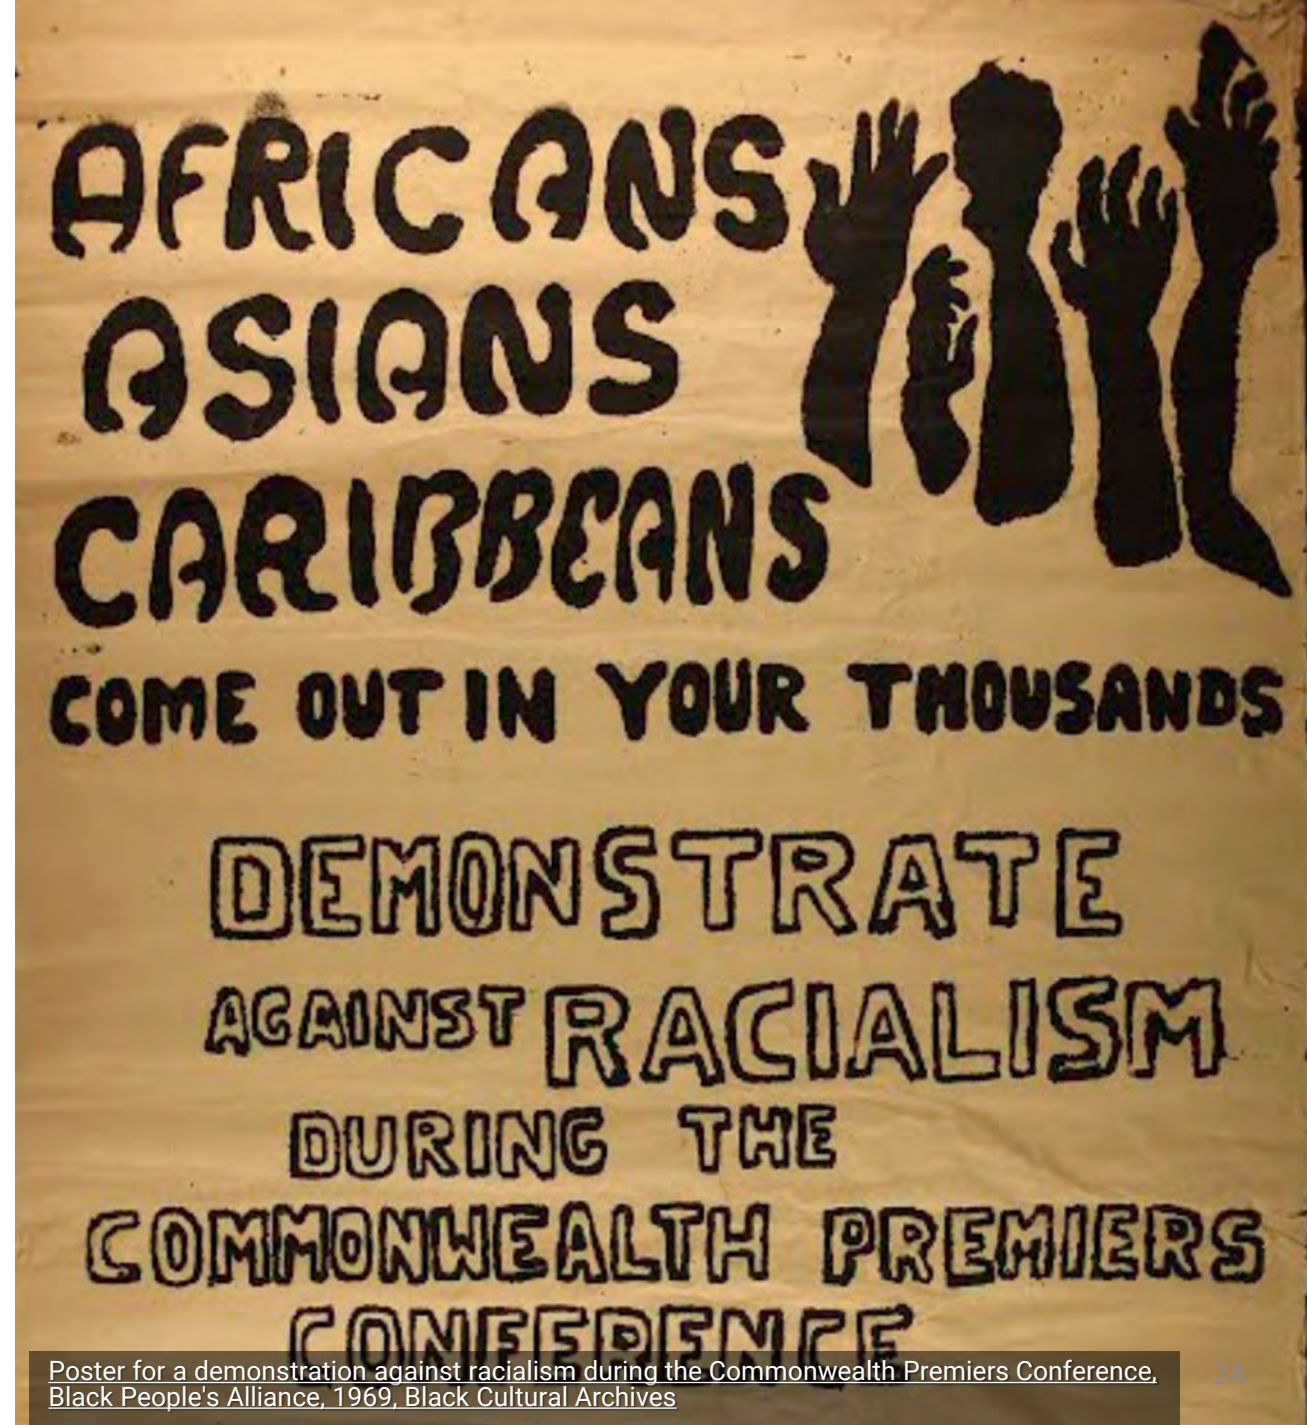 AFRICANS
ASIANS
CARIBBEANS
COME OUT IN YOUR THOUSANDS
DEMONSTRATE
AGAINST RACIALISM
DURING THE
COMMONWEALTH PREMIERS
CONFERENCE
Poster for a demonstration against racialism during the Commonwealth Premiers Conference,
Black People's Alliance, 1969, Black Cultural Archives
24